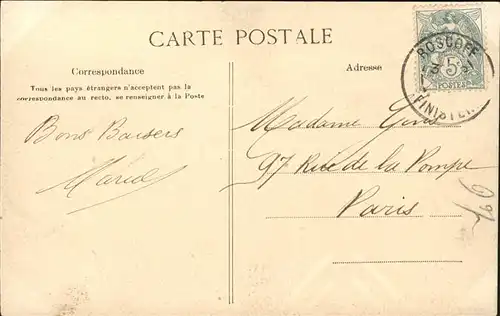 CARTE POSTALE
Correspondance
Tous les pays étrangers n'acceptent pas la
correspondance au recto, se renseigner à la Poste
Bons Baisers
Maria
Adresse
Madame
97 Rue de la Pompe
Paris
ROSCOFF
FINISTERE
5
POSTES